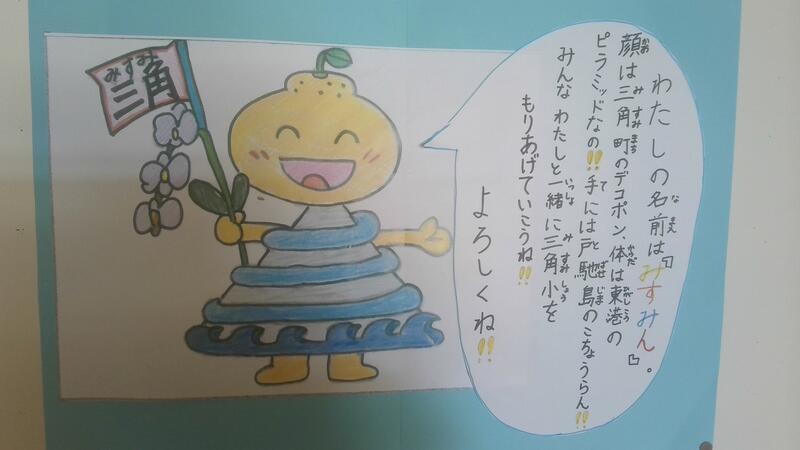 みすみ
三角
わたしの名前は『みすみん』。
顔は三角町のデコポン、体は東港の
ピラミッドなの!!手には戸馳島のこちょうらん!!
みんなわたしと一緒に三角小を
もりあげていこうね!!
よろしくね!!